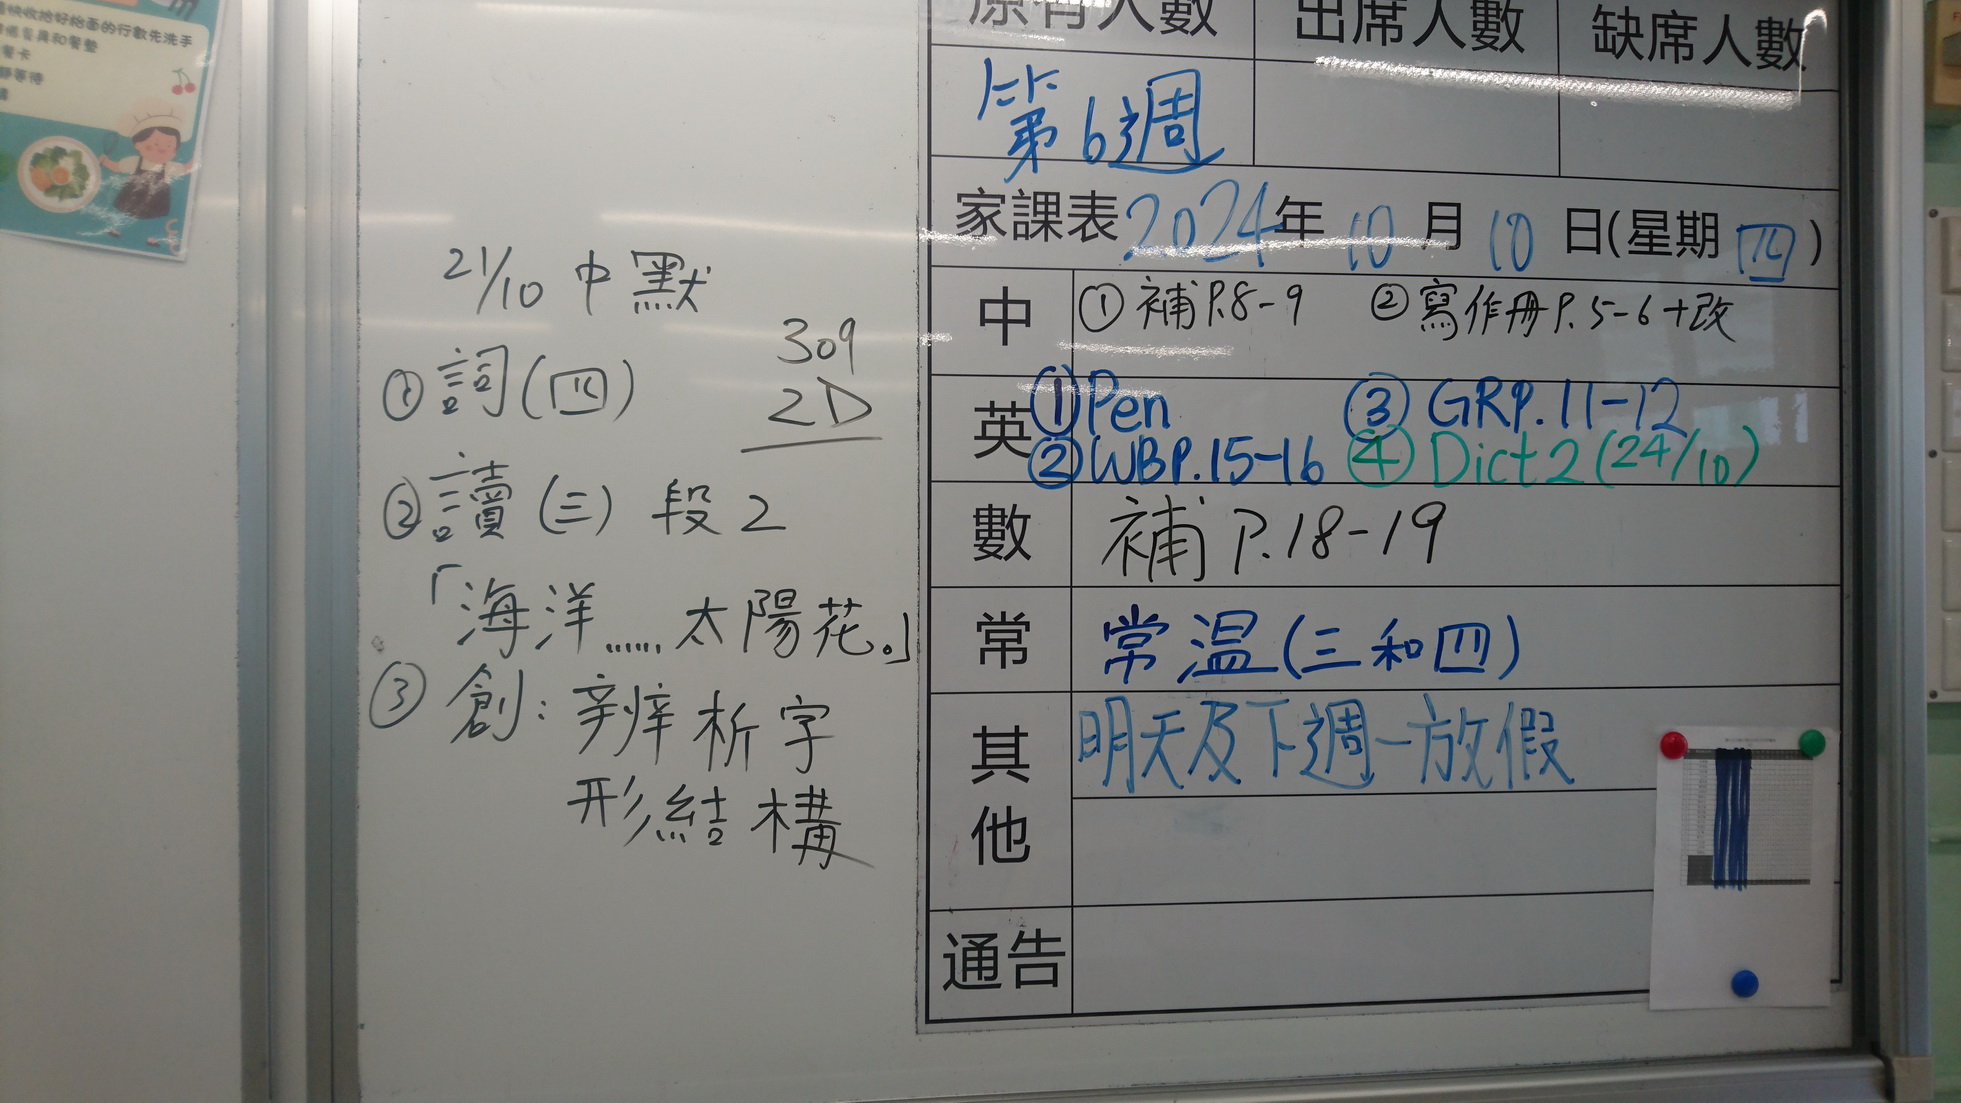 快收拾好枱面的行散先洗手
餐具和餐墊
餐卡
靜等待
21/10 中默
309
2D
① 詞(四)
② 讀(三) 段2
「海洋......太陽花。」
③ 創：辨析字
形結構
原有人數 出席人數 缺席人數
第6週
家課表2024年10月10日(星期四)
中 ①補P.8-9 ②寫作冊P.5-6+改
英 ①Pen ③GRP.11-12
②WBP.15-16 ④Dict2(24/10)
數 補P.18-19
常 常温(三和四)
其他 明天及下週一放假
通告